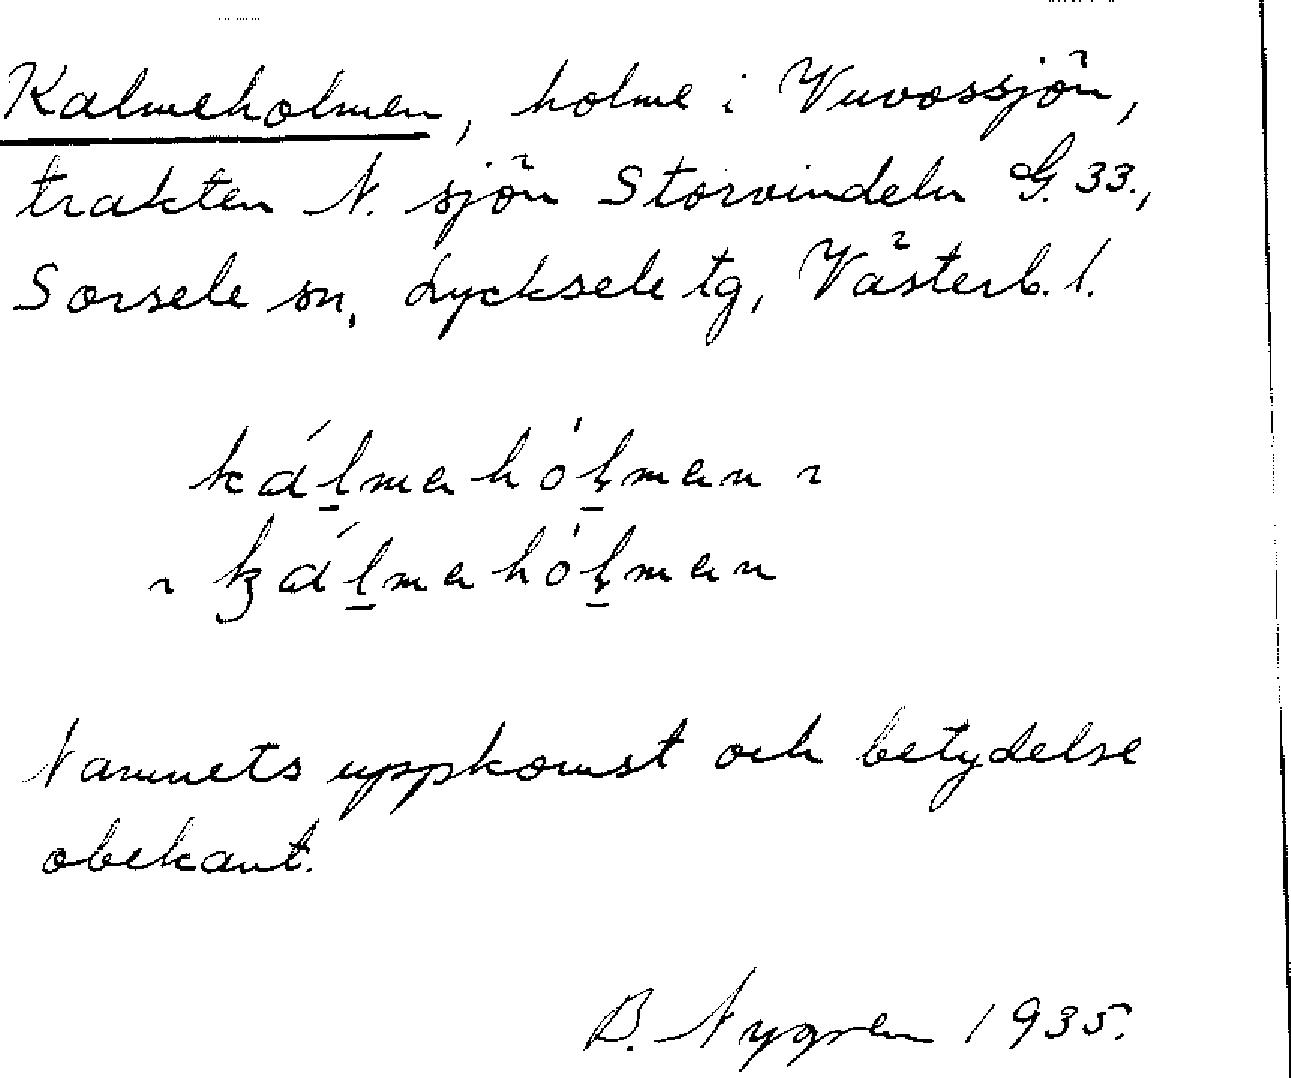 Kalmeholmen, holme i Vuvossjön,
trakten N. sjön Storvindeln G. 33.,
Sorsele sn, Lycksele tg, Västerb. l.
kálmahólman ~
~ ķálmahólman
Namnets uppkomst och betydelse
obekant.
B. Nygren 1935.